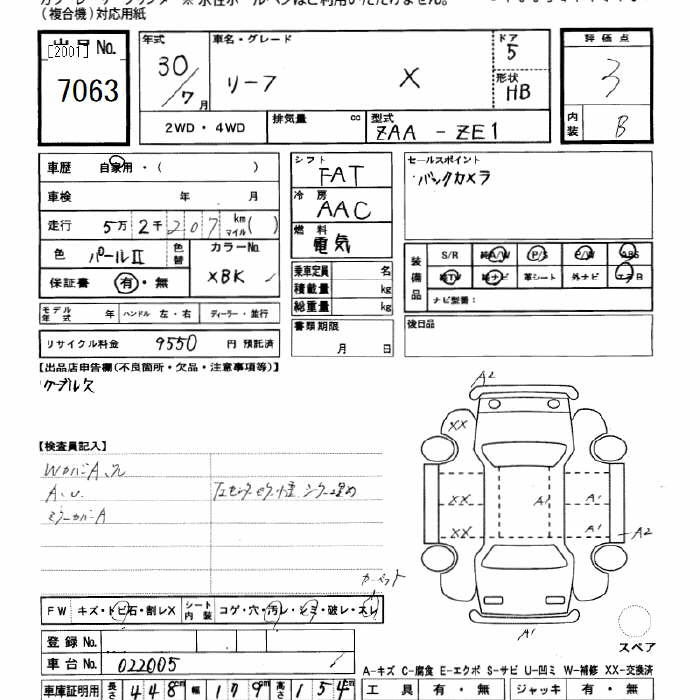 (複合機)対応用紙
出品 No.
[2001]
7063
年式
30/7月
車名・グレード
リーフ X
ドア
5
形状
HB
評価点
3
内装
B
2WD・4WD
排気量 cc
型式
ZAA - ZE1
車歴 自家用・( )
車検 年 月
走行 5万 2千 207 km マイル( )
色 パールII 色替
カラーNo.
XBK
保証書 有・無
シフト
FAT
冷房
AAC
燃料
電気
乗車定員 名
積載量 kg
総重量 kg
書類期限
月 日
セールスポイント
バックカメラ
装備品
S/R 純A/W P/S P/W ABS
純TV 純ナビ 革シート 外ナビ エアB
ナビ型番:
後日品
モデル年式 年 ハンドル 左・右 ディーラー・並行
リサイクル料金 9550 円 預託済
【出品店申告欄(不良箇所・欠品・注意事項等)】
ケーブル欠
【検査員記入】
WカバーA、
A、U、
ミラーカバーA
カーペット
A2
XX
XX A1 A1
XX A1 A2
A1
スペア
FW キズ・トビ石・割レX シート内装 コゲ・穴・汚レ・シミ・破レ・スレ
登録 No.
車台 No. 022005
A-キズ C-腐食 E-エクボ S-サビ U-凹ミ W-補修 XX-交換済
車庫証明用 長さ 448cm 幅 179cm 高さ 154cm
工具 有・無 ジャッキ 有・無